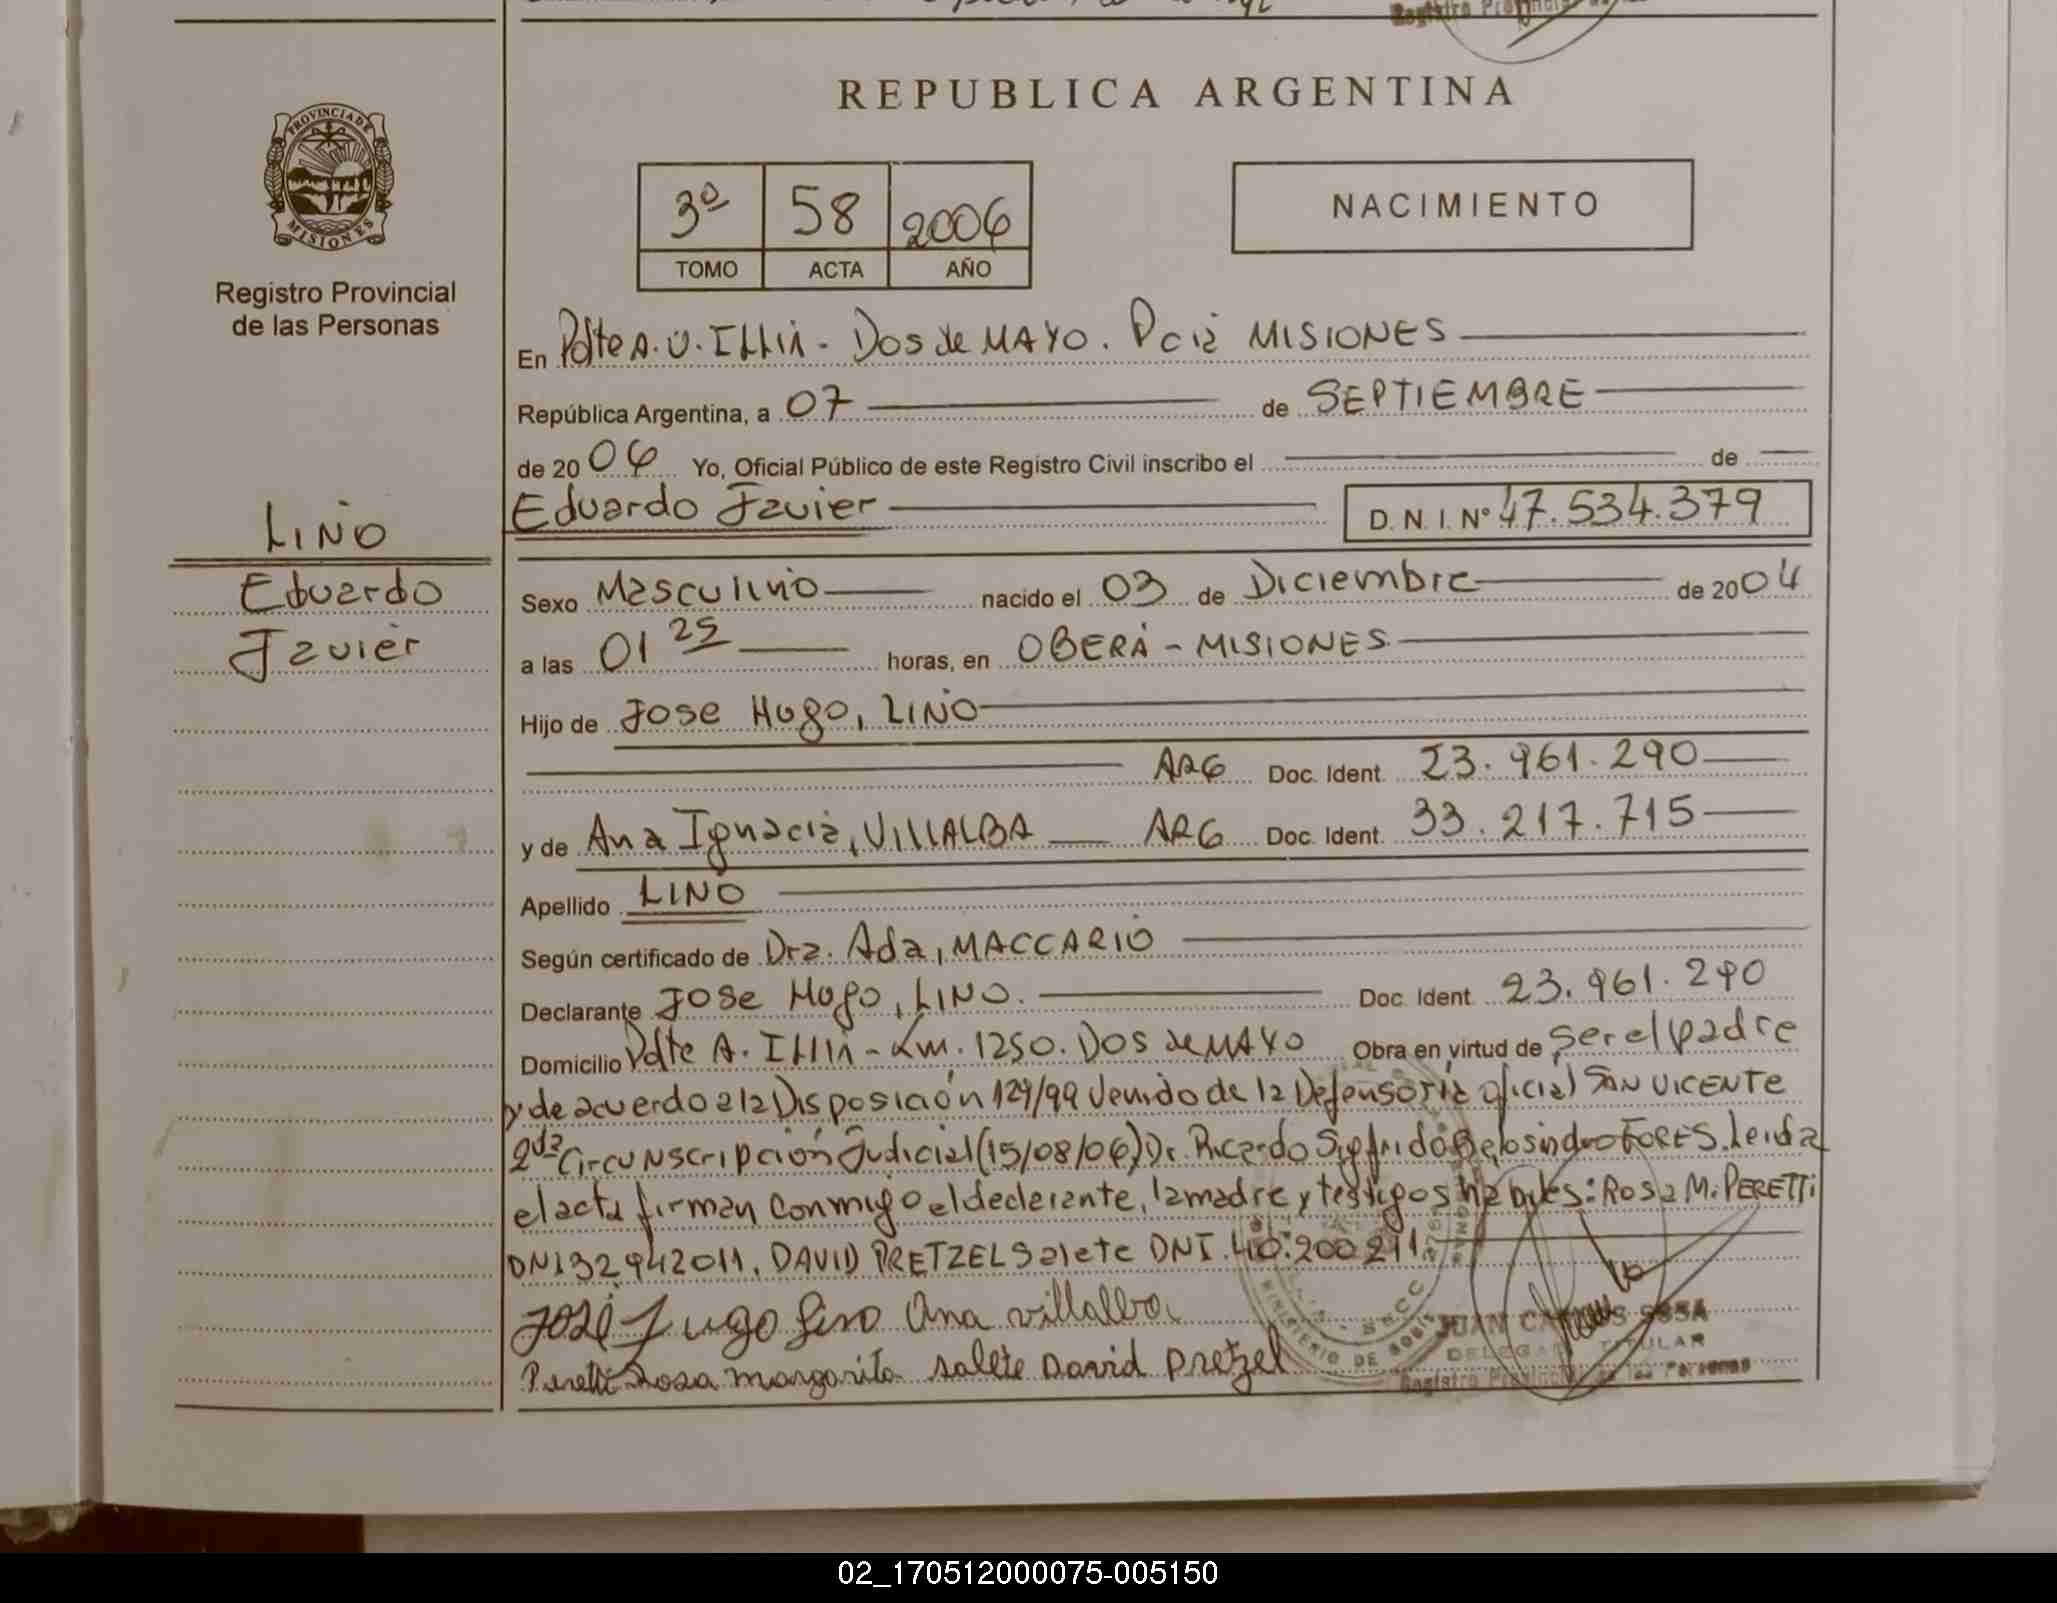 REPUBLICA ARGENTINA
PROVINCIA DE
MISIONES
Registro Provincial
de las Personas
3º 58 2006
TOMO ACTA AÑO
NACIMIENTO
En Pdte A. U. ILLIA - Dos de MAYO. Pcia MISIONES
República Argentina, a 07 de SEPTIEMBRE
de 2006 Yo, Oficial Público de este Registro Civil inscribo el de
Eduardo Javier D. N. I. Nº 47.534.379
LINO
Eduardo
Javier
Sexo Masculino nacido el 03 de Diciembre de 2004
a las 01 25 horas, en OBERÁ - MISIONES
Hijo de Jose Hugo, LINO
ARG Doc. Ident. 23.961.290
y de Ana Ignacia, VILLALBA ARG Doc. Ident. 33.217.715
Apellido LINO
Según certificado de Dra. Ada, MACCARIO
Declarante Jose Hugo, LINO. Doc. Ident. 23.961.290
Domicilio Pdte A. Illia - Km. 1250. Dos de MAYO Obra en virtud de ser el padre
y de acuerdo a la Disposición 129/99 venido de la Defensoria oficial SAN VICENTE
2da Circunscripción Judicial (15/08/06) Dr. Ricardo Sigfrido Belosindro FORES. Leida
el acta firman conmigo el declarante, la madre y testigos habiles: Rosa M. PERETTI
DNI 32942011, DAVID PRETZEL Salete DNI. 40.200211
José Hugo Lino Ana villalba
Peretti Rosa margarita salete David pretzel
MINISTERIO DE GOBIE
JUAN CARLOS SOSA
DELEGADO TITULAR
Registro Provincial de las Personas
02_170512000075-005150